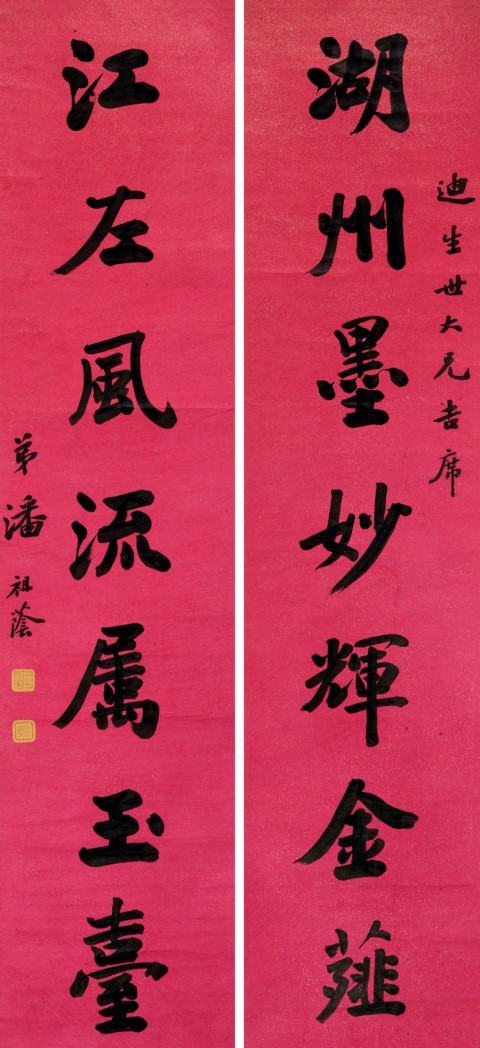 迪生世大兄吉席
湖州墨妙輝金薤
江左風流属玉臺
弟潘祖蔭